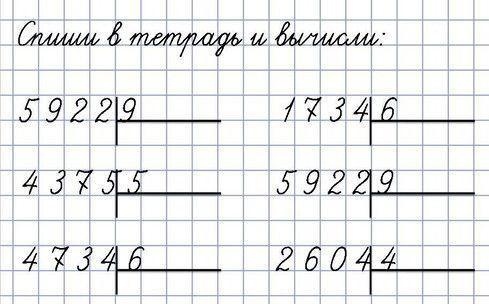 Спиши в тетрадь и вычисли:
5922 9 1734 6
4375 5 5922 9
4734 6 2604 4